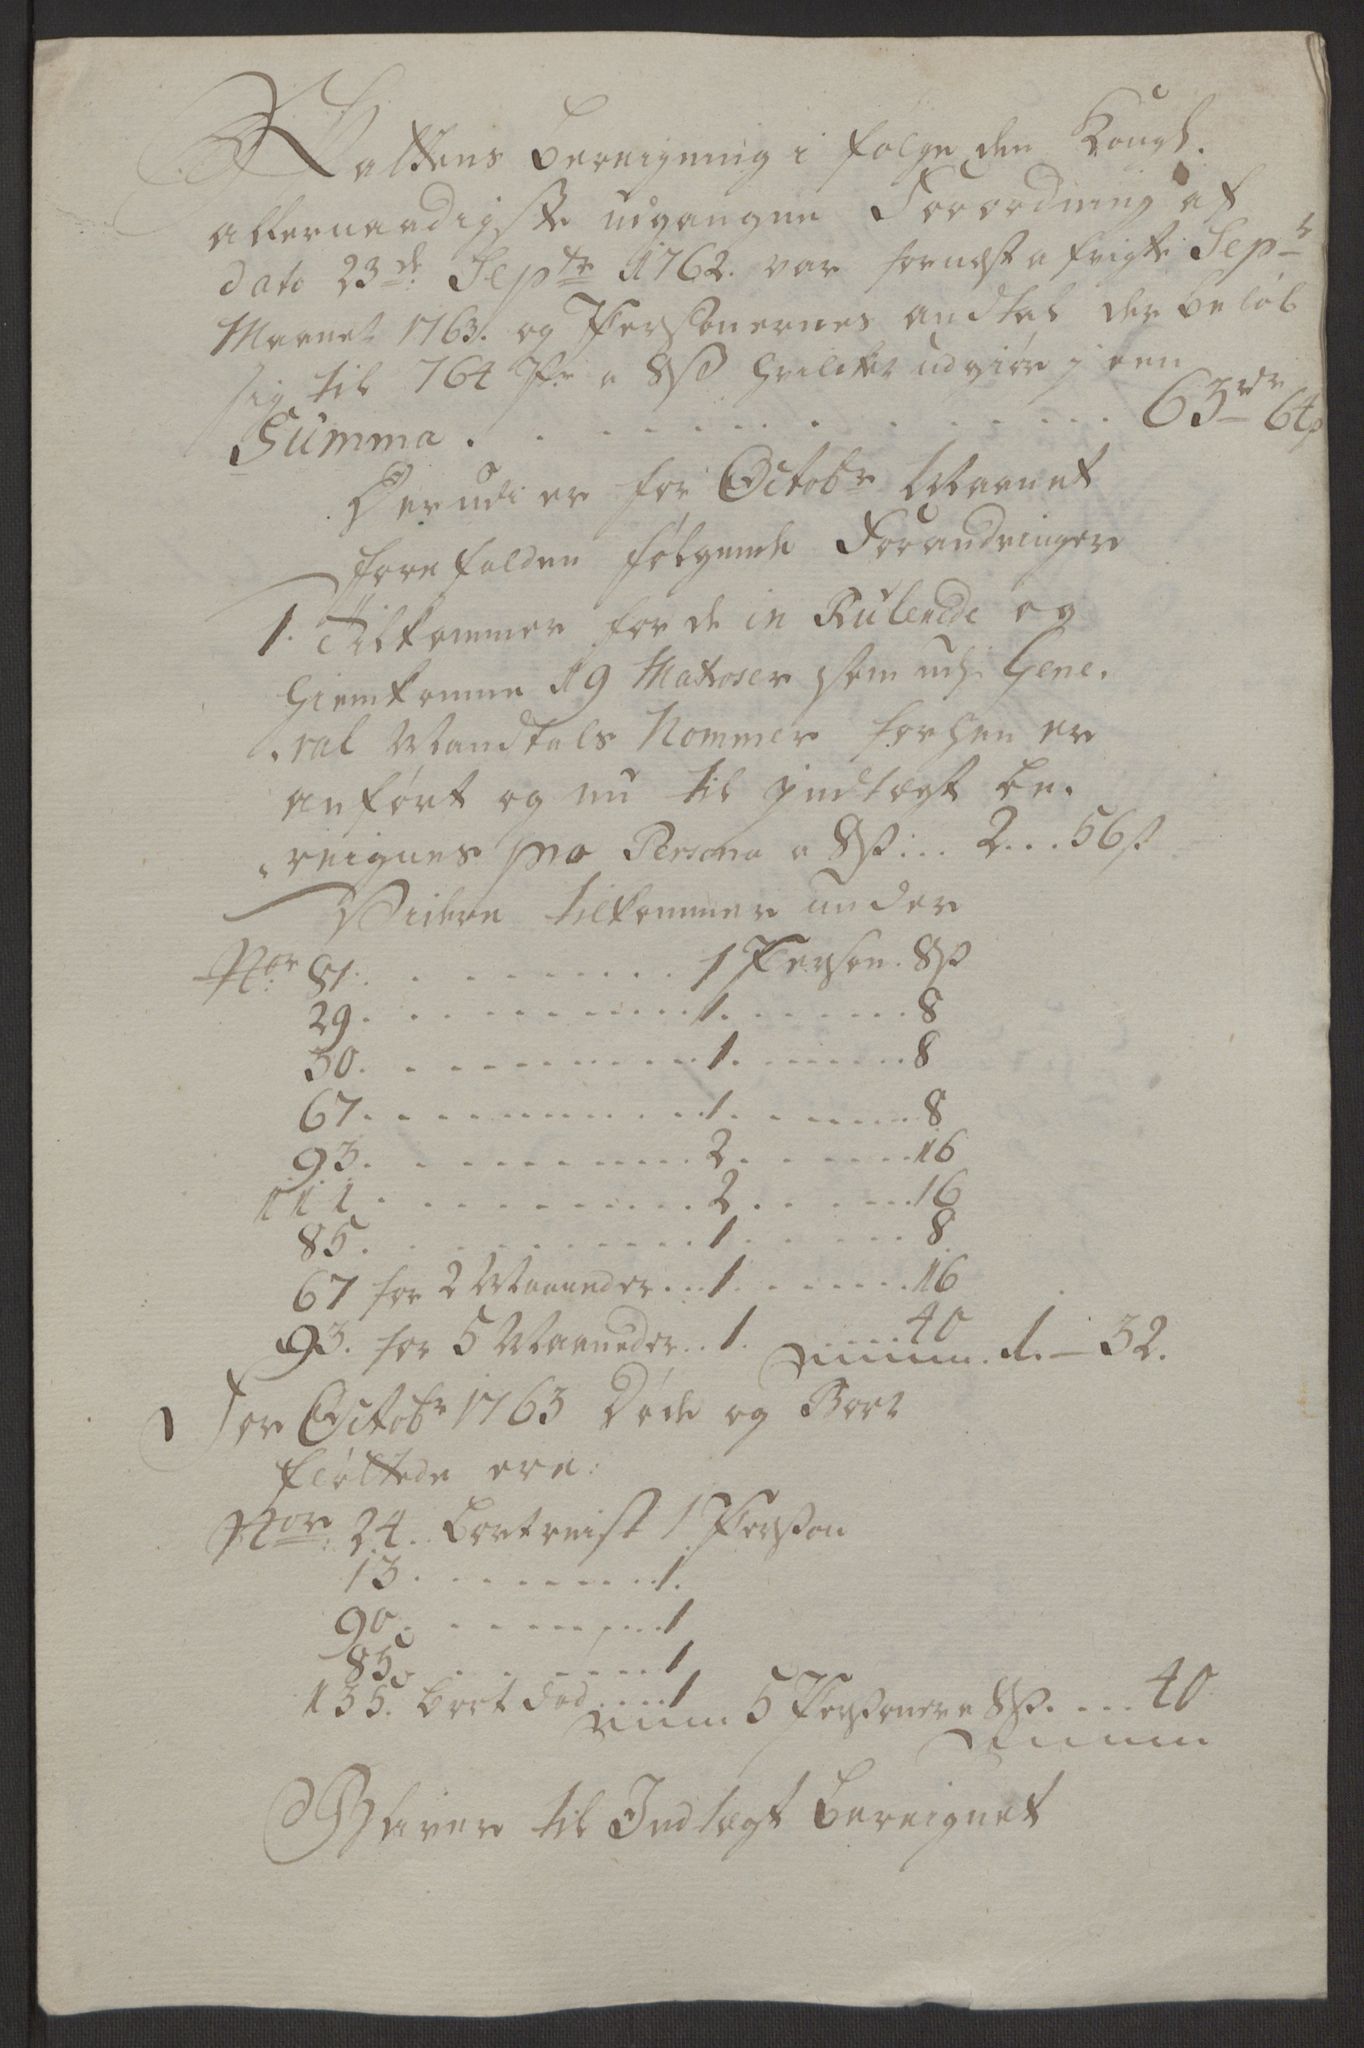 Skattens Bereigning i følge den Kongl.
allernaadigste udgangne Forordning af
dato 23de Septr 1762. var forudsta Sepr
Maanet 1763. og Perssonernes andtal der beløb
sig til 764 Pr a 8s hvilket udgiør j een
Summa . . . . . . . . . . 63rdr 64s
Derudi er for Octobr Maanet
forefalden følgende Forandringer
1. Tilkommer for de in Rulerede og
hiemkomne 19 Matroser som udj Gene.
ral Mandtals Nommer forhen er
anført og nu til jndtægt be.
reignes pro Persona a 8s . . . 2 . . . 56s
Videre tilkommer under
Nor 81. . . . . . . . . 1 Person. 8s
29. . . . . . . . . 1. . . . . . 8
30. . . . . . . . . 1. . . . . . 8
67. . . . . . . . . 1. . . . . . 8
93. . . . . . . . . 2. . . . . . 16
111. . . . . . . . . 2. . . . . . 16
85. . . . . . . . . 1. . . . . . 8
67 for 2 Maaneder. . . 1. . . . . . 16
93. for 5 Maaneder. . 1. 40 1. — 32.
For Octobr 1763 Døde og Bort
fløttede ere:
Nor: 24. bortreist 1 Person
13. . . . . . . . 1.
90. . . . . . . . 1
85. . . . . . . . 1
135. bort død . . . . 1 5 Personer a 8s. . . . 40
Bliver til Indtægt bereignet